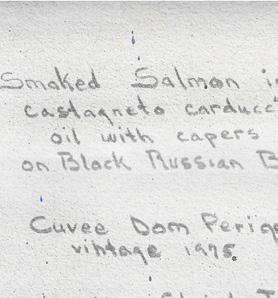 Smoked Salmon in
castagneto carducc
oil with capers
on Black Russian B
Cuvee Dom Perig
vintage 1975.